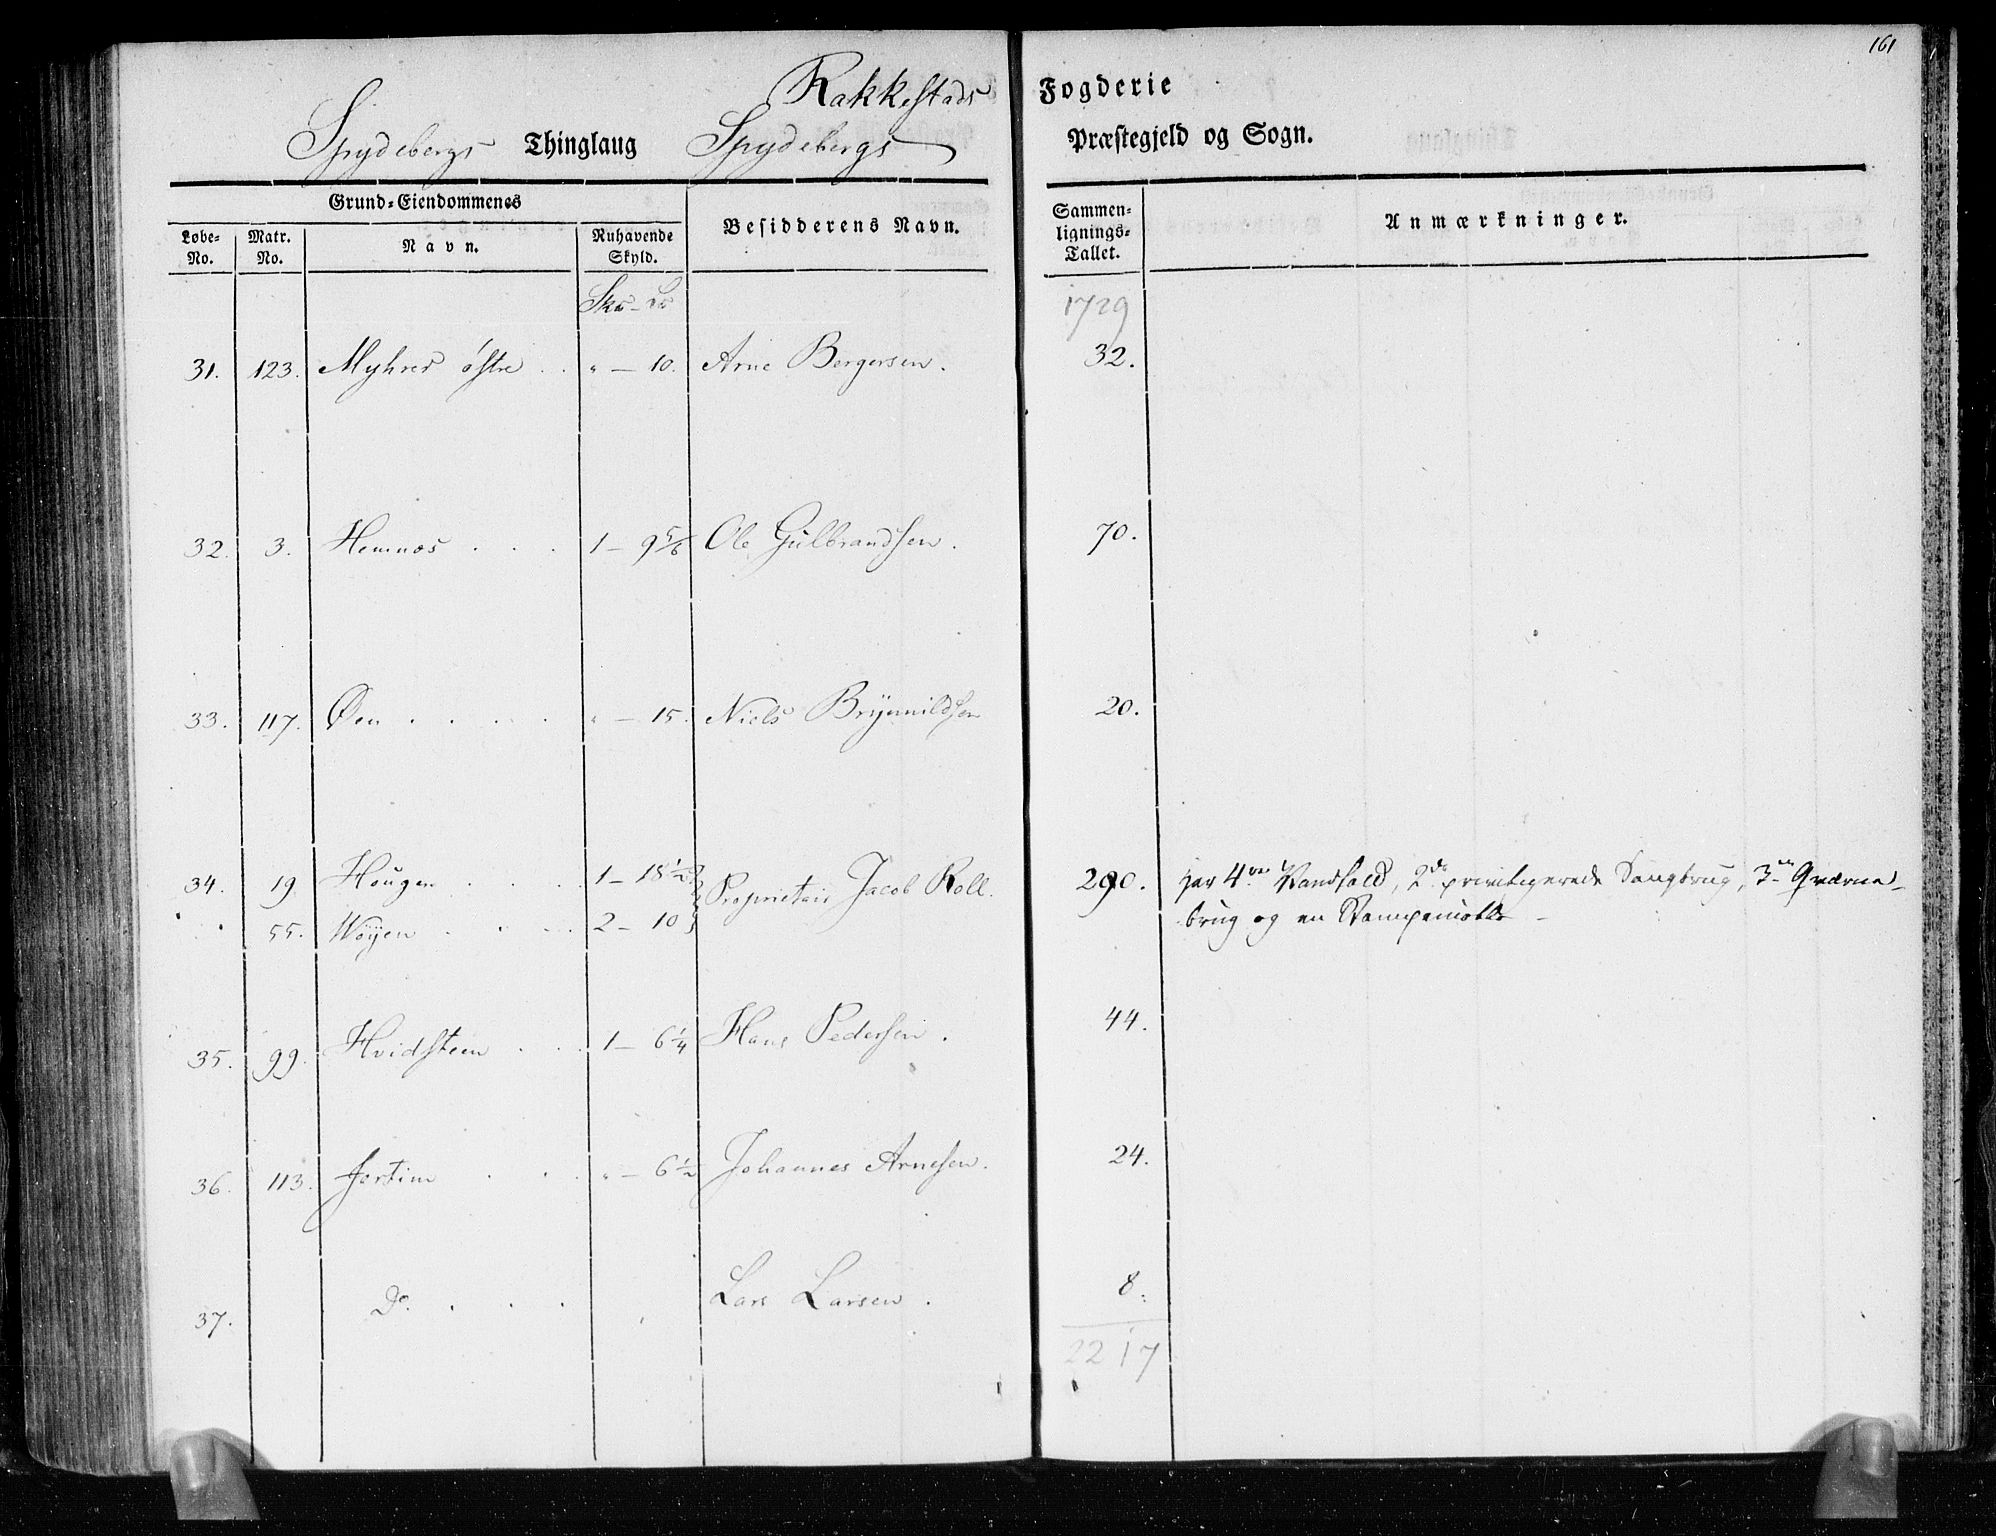 161
Rakkestads Fogderie
Spydebergs Thinglaug Spydebergs Præstegjeld og Sogn.
Grund-Eiendommenes
Løbe-No. Matr. No. Navn. Nuhavende Skyld. Besidderens Navn. Sammenlignings-Tallet. Anmærkninger.
1729
31. 123. Myhrer østre . . " — 10. Arne Bergersen. 32.
32. 3. Hemnæs . . . 1 — 9 5/6 Ole Gulbrandsen. 70.
33. 117. Øen . . . . " — 15. Niels Brynnildsen 20.
34. 19 Hougen . . . 1 — 18 1/2 Proprietair Jacob Roll. 290. har 4re Vandfald, 2de privilegerede Saugbrug, 3de Qværne-
55. Wøyen . . . 2 — 10 brug og en Stampemølle —
35. 99. Hvidsteen . . 1 — 6 1/4 Hans Pedersen. 44.
36. 113. Fortim . . . " — 6 1/2 Johannes Arnesen. 24.
37. Do. . . . Lars Larsen. 8.
2217